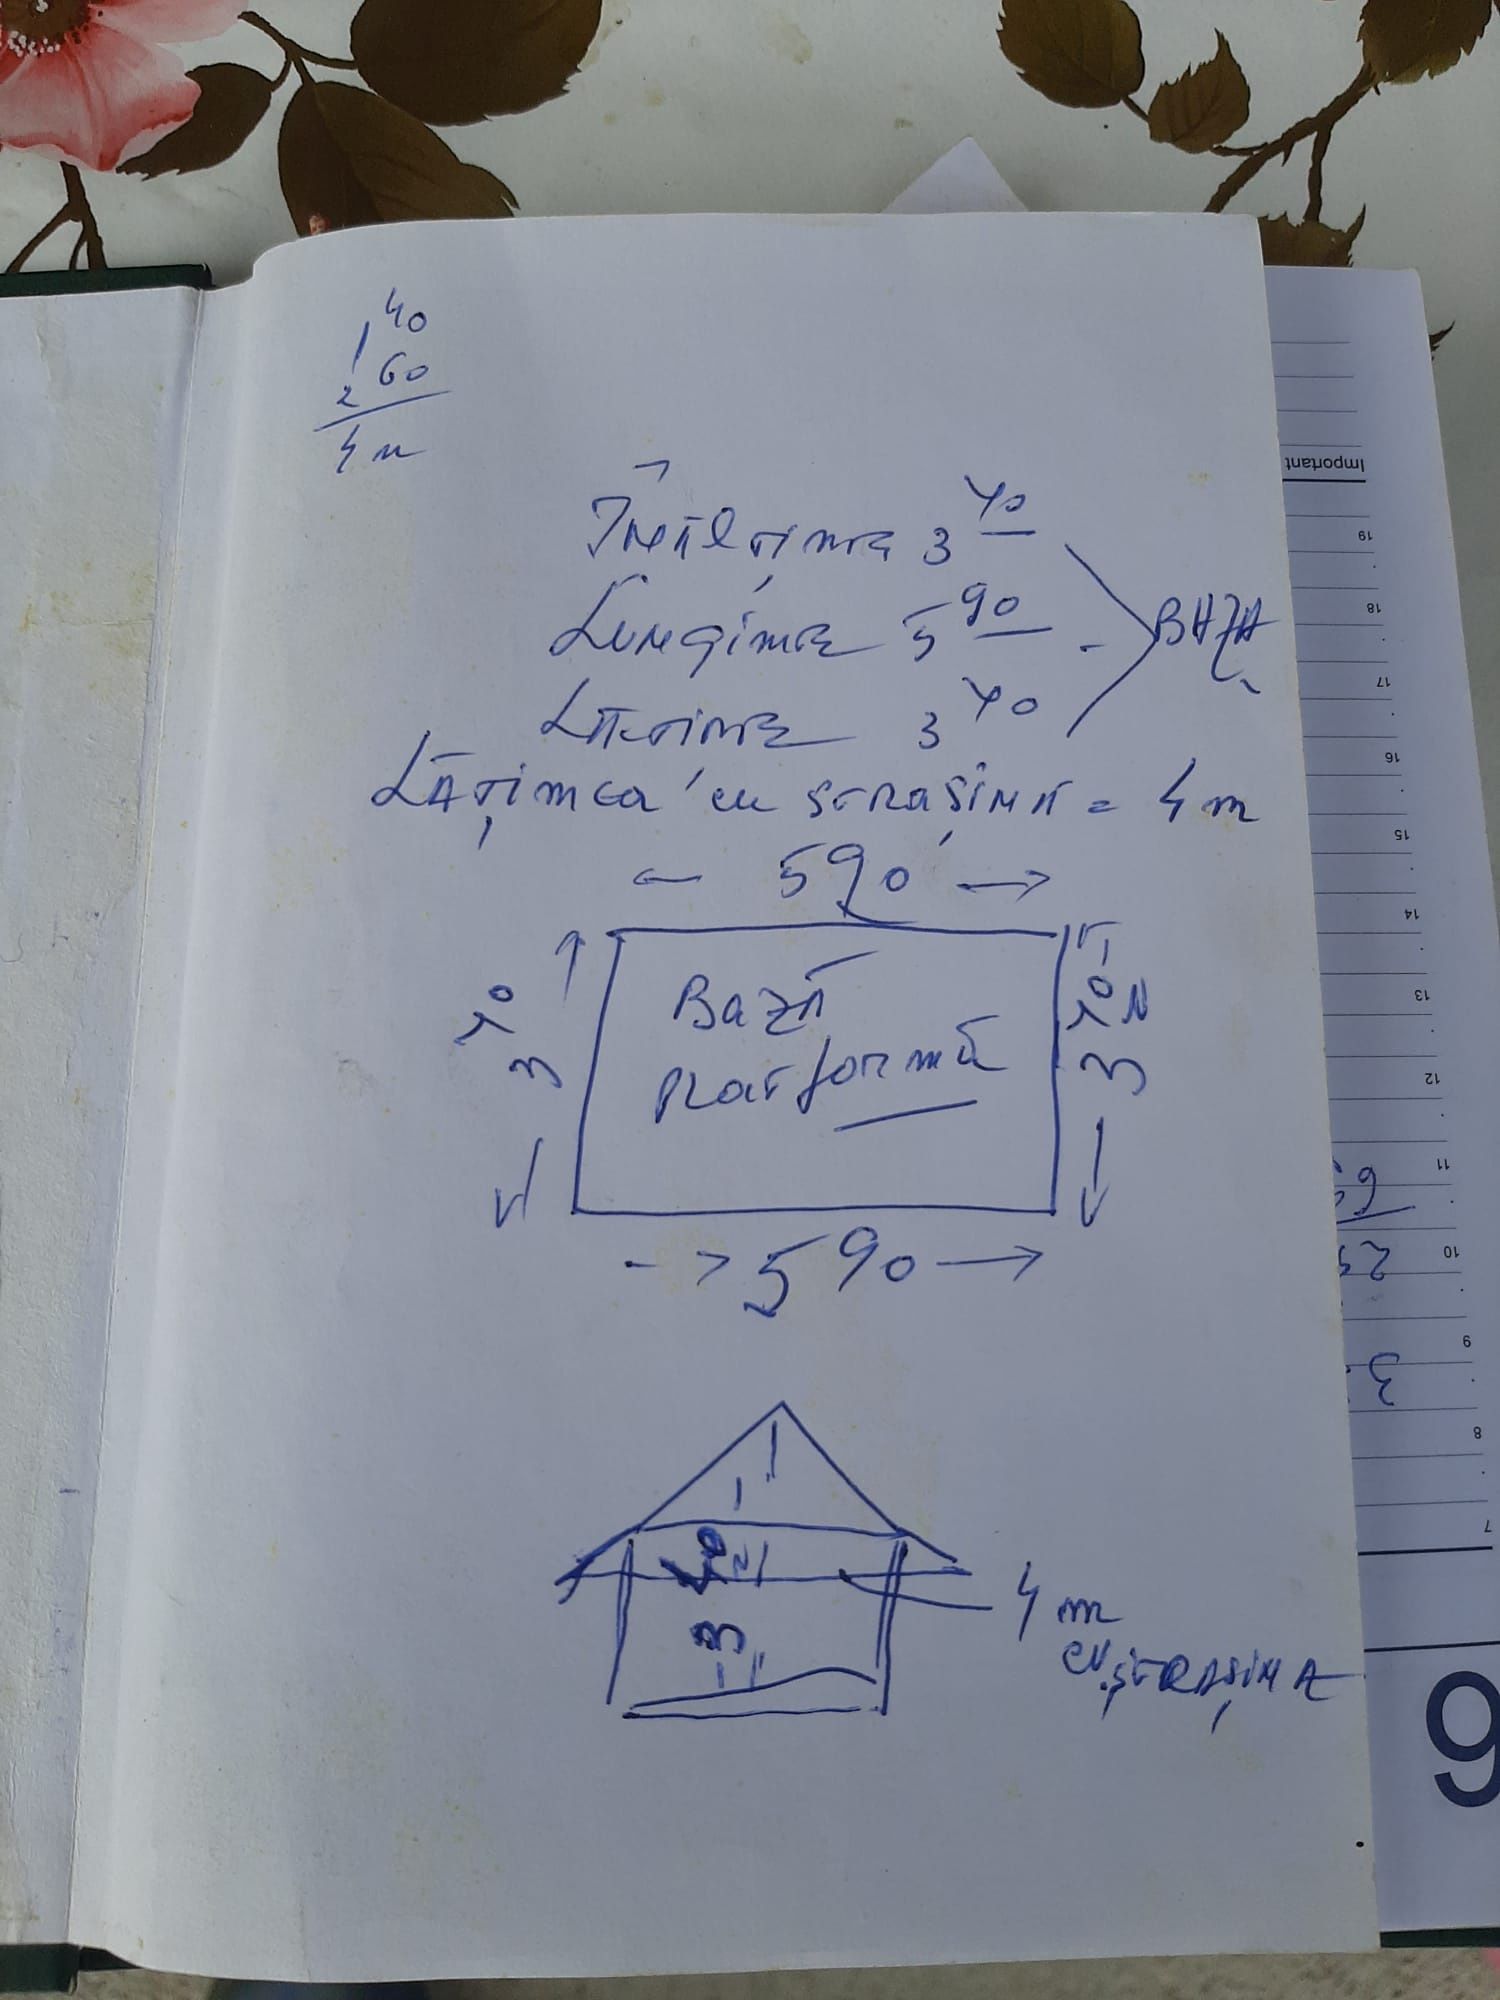 1 40
2 60
4 m
Înălțime 3 40
Lungime 5 90
Lățime 3 40
BAZA
Lățimea cu ștrașină = 4 m
5 90
3 40
Bază
platformă
3 40
5 90
3 40
4 m
cu ștrașină
Important
19
18
17
16
15
14
13
12
11
10
9
8
7
9